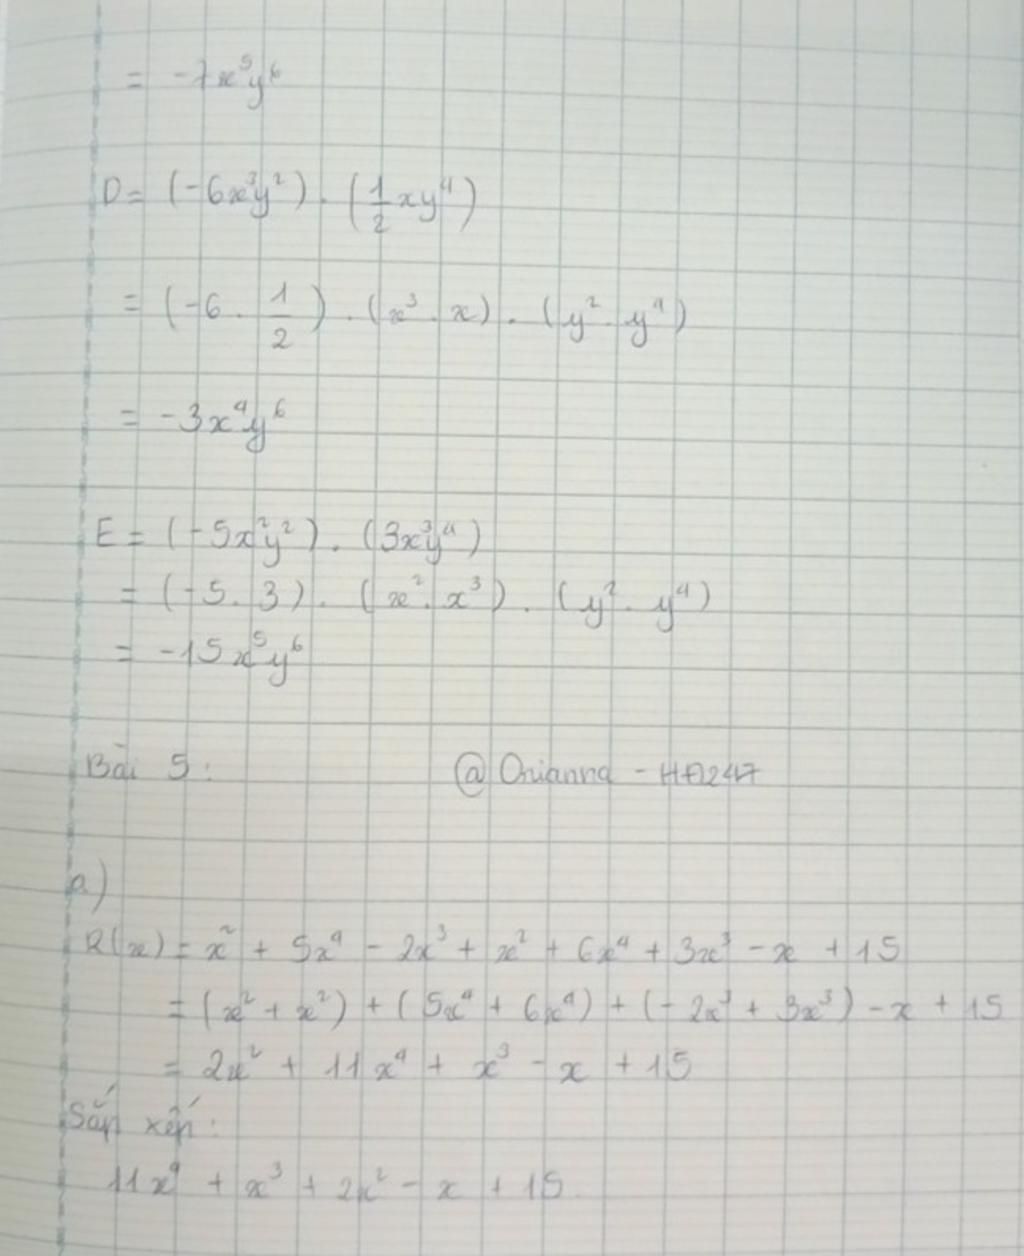 = -7x⁵y⁶
D = (-6x³y²) . (1/2 xy⁴)
= (-6 . 1/2) . (x³ . x) . (y² . y⁴)
= -3x⁴y⁶
E = (-5x²y²) . (3x³y⁴)
= (-5 . 3) . (x² . x³) . (y² . y⁴)
= -15x⁵y⁶
Bài 5: @Orianna - HĐ247
a)
R(x) = x² + 5x⁴ - 2x³ + x² + 6x⁴ + 3x³ - x + 15
= (x² + x²) + (5x⁴ + 6x⁴) + (-2x³ + 3x³) - x + 15
= 2x² + 11x⁴ + x³ - x + 15
Sắp xếp:
11x⁴ + x³ + 2x² - x + 15